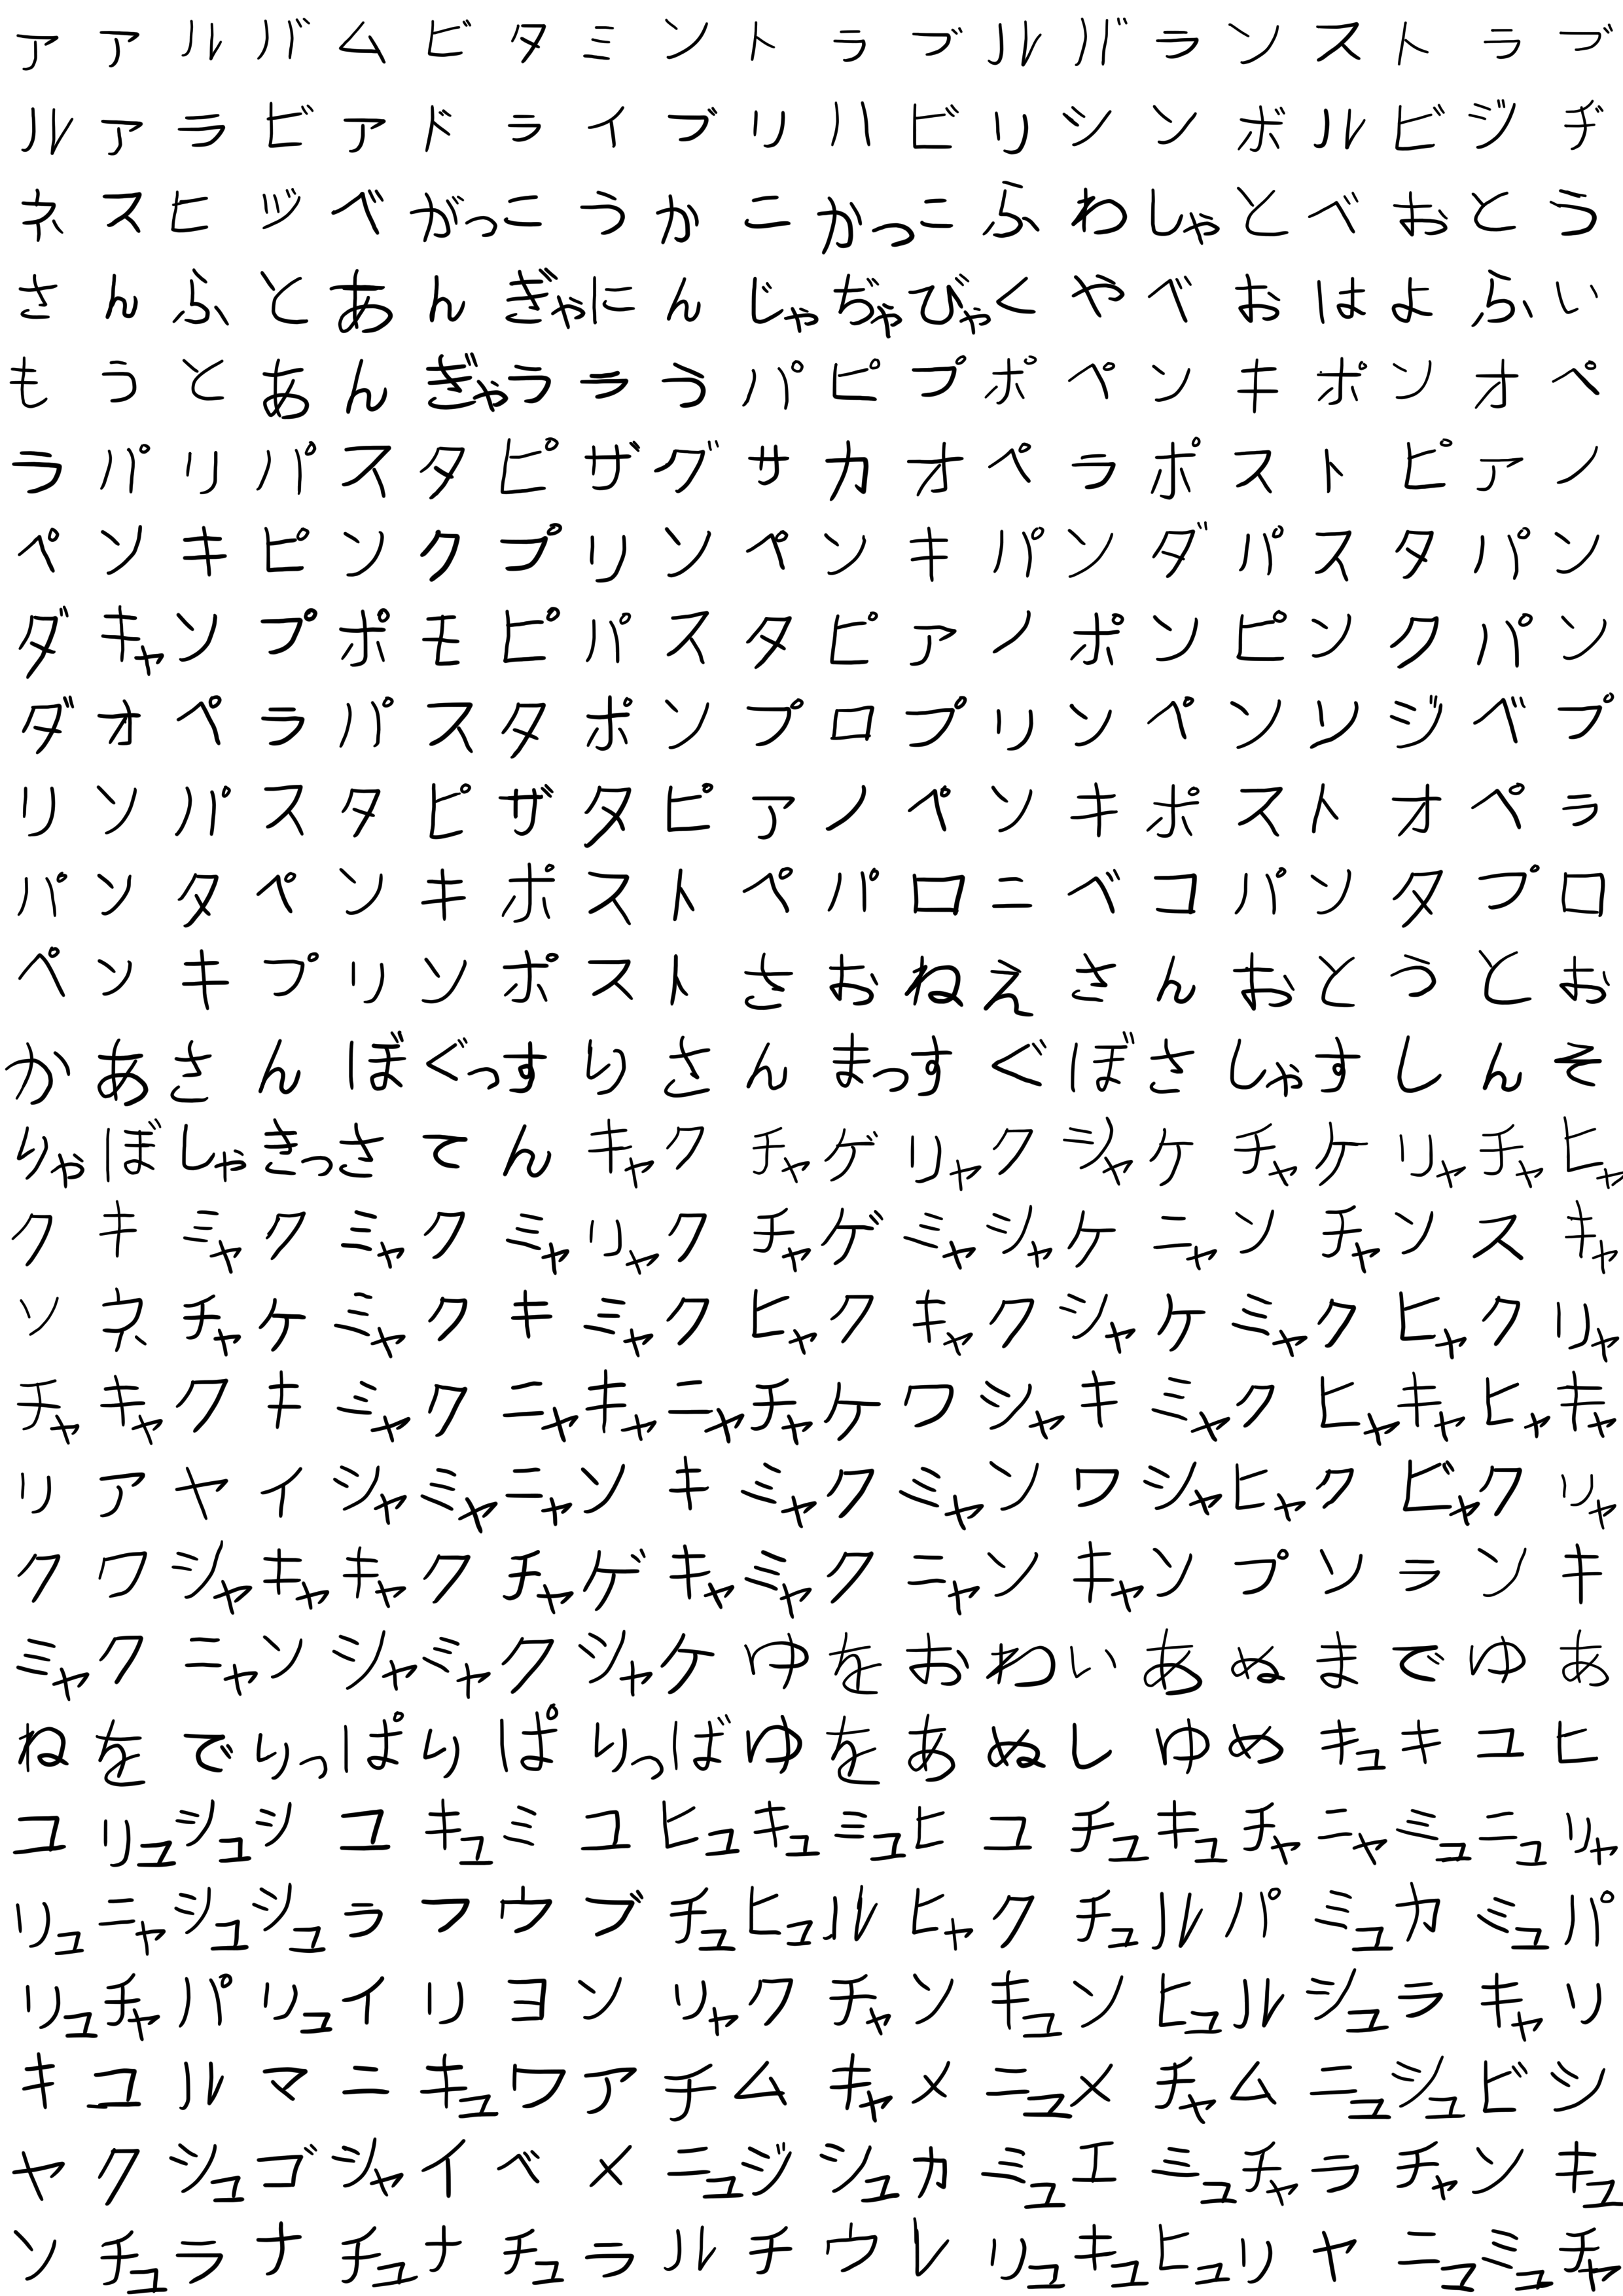 アアルバムビタミントラブルバランストラブ
ルアラビアドライブリハビリシンボルビジヂ
ネスヒヅベがっこうかこかっこふわしゃとべおとう
さんふとあんぎゃにんじゃぢゃびゃくやべおはよふい
もうとあんぎゃララうパピプポペンキポンオペ
ラパリパスタピザグサカオペラポストピアノ
ペンキピンクプリンペンキパンダパスタパン
ダキャンプポモピパスタピアノポンピンクパン
ダオペラパスタポンプロプリンペンレジベプ
リンパスタピザタピアノペンキポストオペラ
パンタペンキポストペパロニベコパンタプロ
ペンキプリンポストさおねえさんおとうとお
かあさんぼぐっすりさんまっすぐぼさしゃすしんそ
りゃぼしゃきっさてんキャクチャゲリャクジャケチャケリャチャヒャ
クキミャクミャクミャリャクチャゲミャシャケニャンチャンスキャ
ソネチャケミャクキミャクヒャクキャクシャケミャクヒャクリャ
チャキャクキミャクニャキャニャチャケワシャキミャクヒャキャヒャキャ
リアヤイシャミャニャンキミャクミャンワシャヒャクビャクリャ
クワシャキャキャクチャゲキャミャクニャンキャンプソランキ
ミャクニャンシャミャクシャケゆをおわいあぬまでゆあ
ねをでりっぱりぱりっばゆをあぬしゆめキュキユヒ
ユリュシュシユキュミユヒュキュミュヒユチュキュチャニャミュニュリャ
リュニャシュシュラフウブチュヒュルヒャクチュルパミュカミュパ
リュチャパリュイリヨンリャクチャンキュンヒュルシュラキャリ
キユルマニキュワアチムキャメニュメチャムニュシュビシ
ヤクシュゴシャイベメニュジシュカミュエミュチャラチャンキュ
ンチュラナチュナチュラルチウレリュキュヒュリヤニュミュチャ